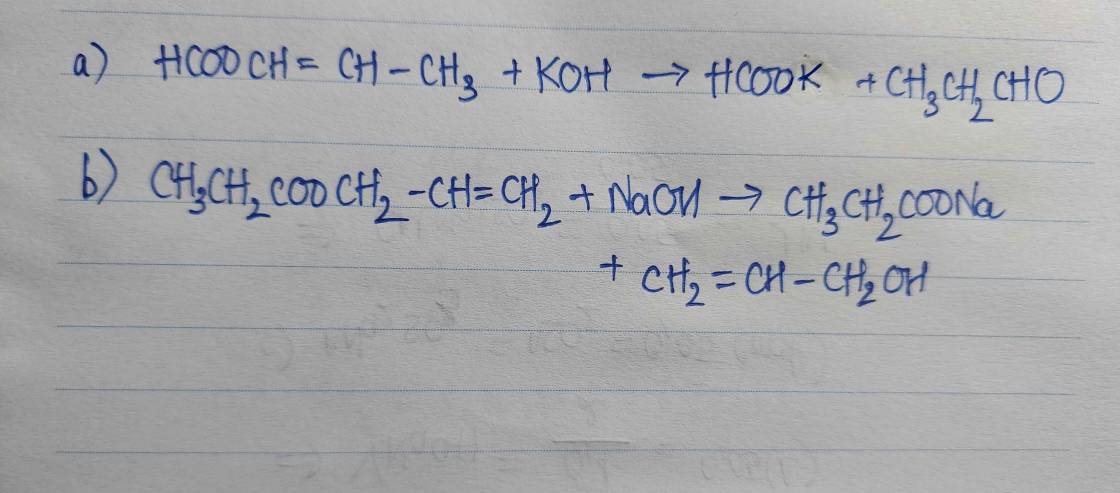 a) HCOOCH = CH – CH₃ + KOH → HCOOK + CH₃CH₂CHO
b) CH₃CH₂COOCH₂ – CH = CH₂ + NaOH → CH₃CH₂COONa
+ CH₂ = CH – CH₂OH